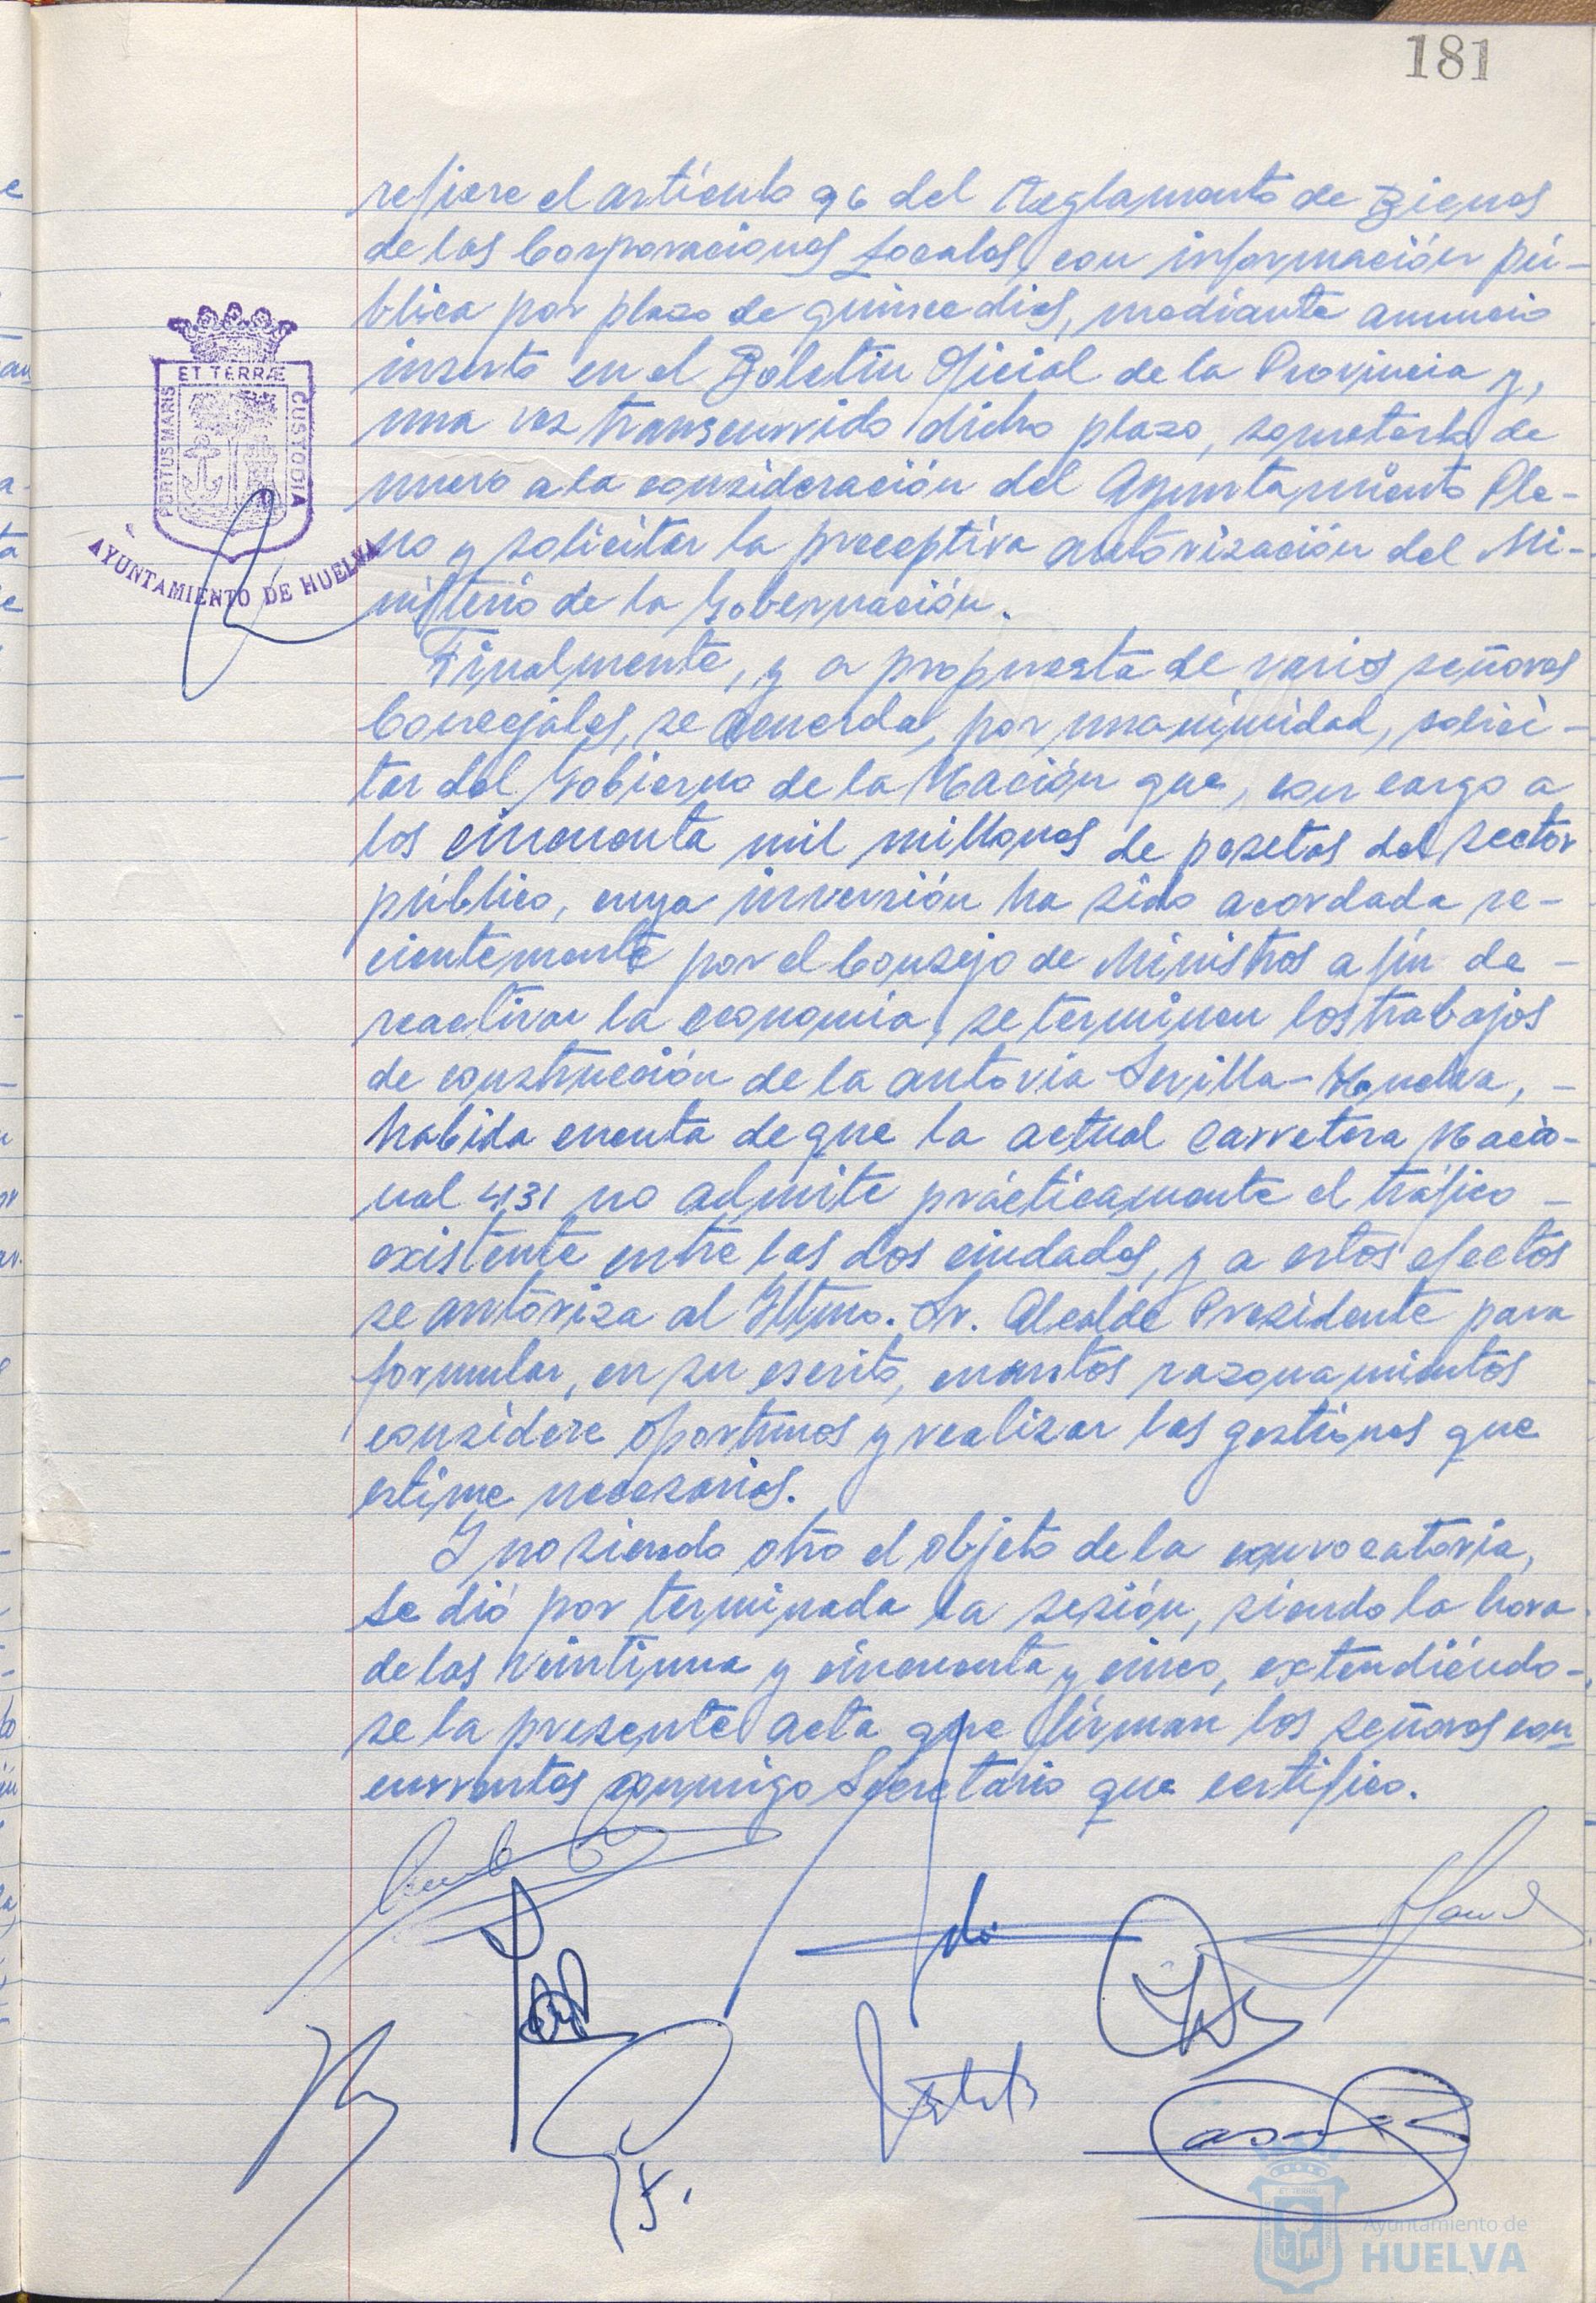 181
refiere el artículo 96 del Reglamento de Bienes
de las Corporaciones Locales, con información pú-
blica por plazo de quince dias, mediante anuncio
inserto en el Boletin Oficial de la Provincia y,
una vez transcurrido dicho plazo, someterlo de
nuevo a la consideración del Ayuntamiento Ple-
no y solicitar la preceptiva autorización del Mi-
nisterio de la Gobernación.
ET TERRÆ
PORTUS MARIS
CUSTODIA
AYUNTAMIENTO DE HUELVA
Finalmente, y a propuesta de varios señores
Concejales, se acuerda, por unanimidad, solici-
tar del Gobierno de la Nación que, con cargo a
los cincuenta mil millones de pesetas del sector
público, cuya inversión ha sido acordada re-
cientemente por el Consejo de Ministros a fin de -
reactivar la economía, se terminen los trabajos
de construcción de la autovia Sevilla-Huelva, -
habida cuenta de que la actual Carretera Nacio-
nal 431 no admite prácticamente el tráfico -
existente entre las dos ciudades, y a estos efectos
se autoriza al Iltmo. Sr. Alcalde Presidente para
formular, en su escrito, cuantos razonamientos
considere oportunos y realizar las gestiones que
estime necesarias.
Y no siendo otro el objeto de la convocatoria,
se dió por terminada la sesión, siendo la hora
de las veintiuna y cincuenta y cinco, extendiéndo-
se la presente acta que firman los señores con-
currentes conmigo Secretario que certifico.
Ayuntamiento de
HUELVA